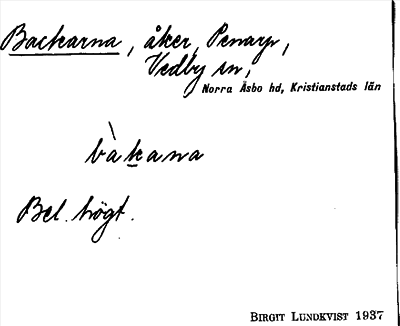 Backarna, åker, Penarp,
Vedby sn,
Norra Åsbo hd, Kristianstads län
bàkana
Bel. högt.
BIRGIT LUNDKVIST 1937